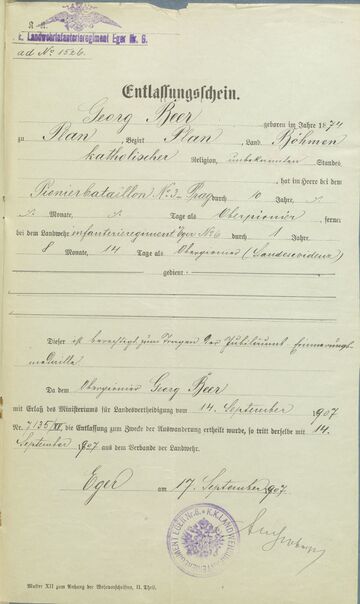 K. K.
k. Landwehrinfanterieregiment Eger Nr. 6.
ad No 1526.
Entlassungsschein.
Georg Beer geboren im Jahre 1874
zu Plan, Bezirk Plan, Land Böhmen
katholischer Religion, unbekannten Standes
, hat im Heere bei dem
Pionierbataillon No 3 Prag durch 10 Jahre
Monate, Tage als Oberpionier, ferner
bei dem Landwehrinfanterieregiment Eger No 6 durch 1 Jahre,
8 Monate, 14 Tage als Oberpionier (Landesevidenz)
gedient.
Dieser ist berechtigt zum Tragen der Jubiläums-Erinnerungs-
medaille
Da dem Oberpionier Georg Beer
mit Erlaß des Ministeriums für Landesvertheidigung vom 14. September 1907
Nr. 7135/XV, die Entlassung zum Zwecke der Auswanderung ertheilt wurde, so tritt derselbe mit 14.
September 1907 aus dem Verbande der Landwehr.
Eger am 17. September 1907.
K.K. LANDWEHRINFANTERIEREGIMENT EGER Nr. 6
Muster XII zum Anhang der Wehrvorschriften, II. Theil.